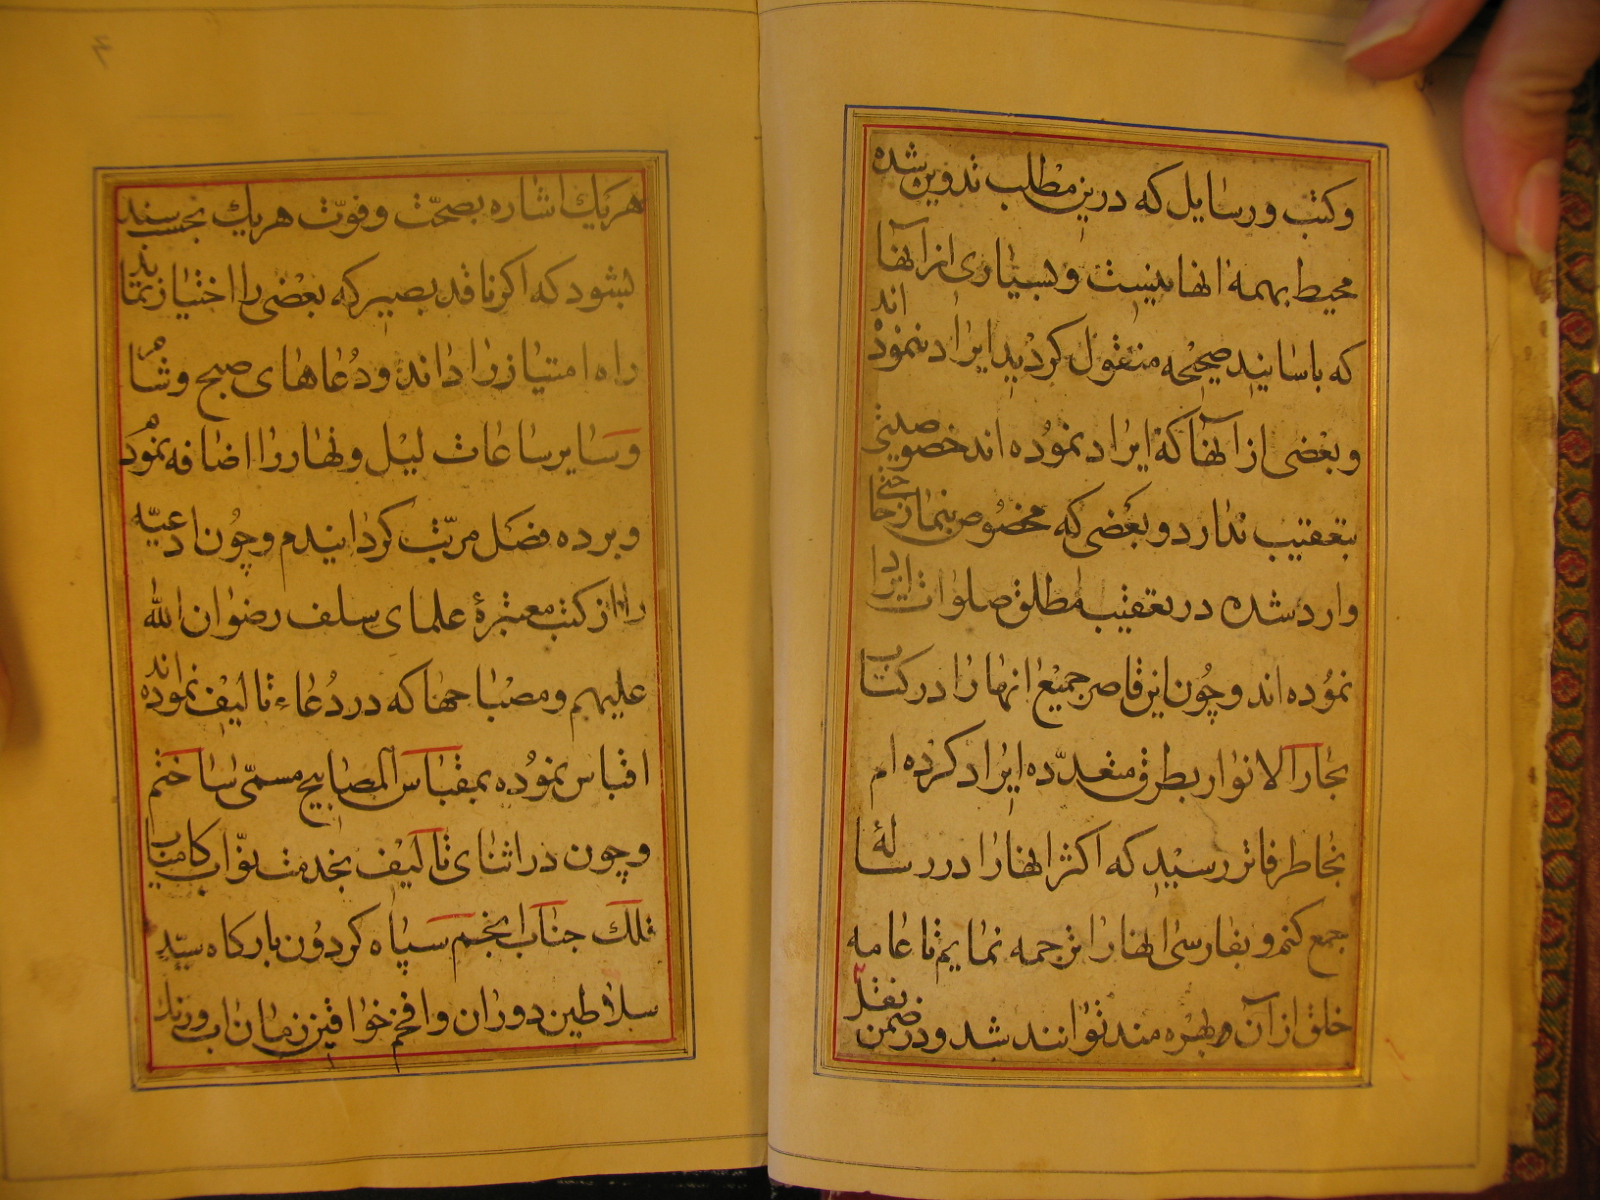 وکتب ورسایل که درین مطلب تدوین شده
محیط بهمه انها نیست وبسیاری از آنها
که باسانید صحیحه منقول کردیده ایراد ننموده اند
وبعضی از آنها که ایراد نموده اند خصوصیتی
بتعقیب ندارد وبعضی که مخصوص بنمازخاصی
وارد شده در تعقیب مطلق صلوات ایراد
نموده اند وچون این قاصر جمیع انها را در کتاب
بحار الانوار بطرق متعدّده ایراد کرده ام
بخاطر فاتر رسید که اکثر انها را در رسالهٔ
جمع کنم وبفارسی انها را ترجمه نمایم تا عامه
خلق از آن بهره مند توانند شد ودر ضمن نقل
هریک اشاره بصحّت وقوّت هریک بحسب سند
بشود که اکر ناقد بصیر که بعضی را اختیار نماید
راه امتیاز را داند ودعاهای صبح وشام
وسایر ساعات لیل ونهار را اضافه نمودم
وبرده فصل مرتّب کردانیدم وچون ادعیه
را از کتب معتبرهٔ علمای سلف رضوان الله
علیهم ومصباحها که در دُعاء تالیف نموده اند
اقتباس نموده بمقباس المصابیح مسمّی ساختم
وچون در اثنای تالیف بخدمت نوّاب کامیاب
فلک جناب انجم سپاه کردون بارکاه سیّد
سلاطین دوران وافخم خواقین زمان اب ورنک
۴